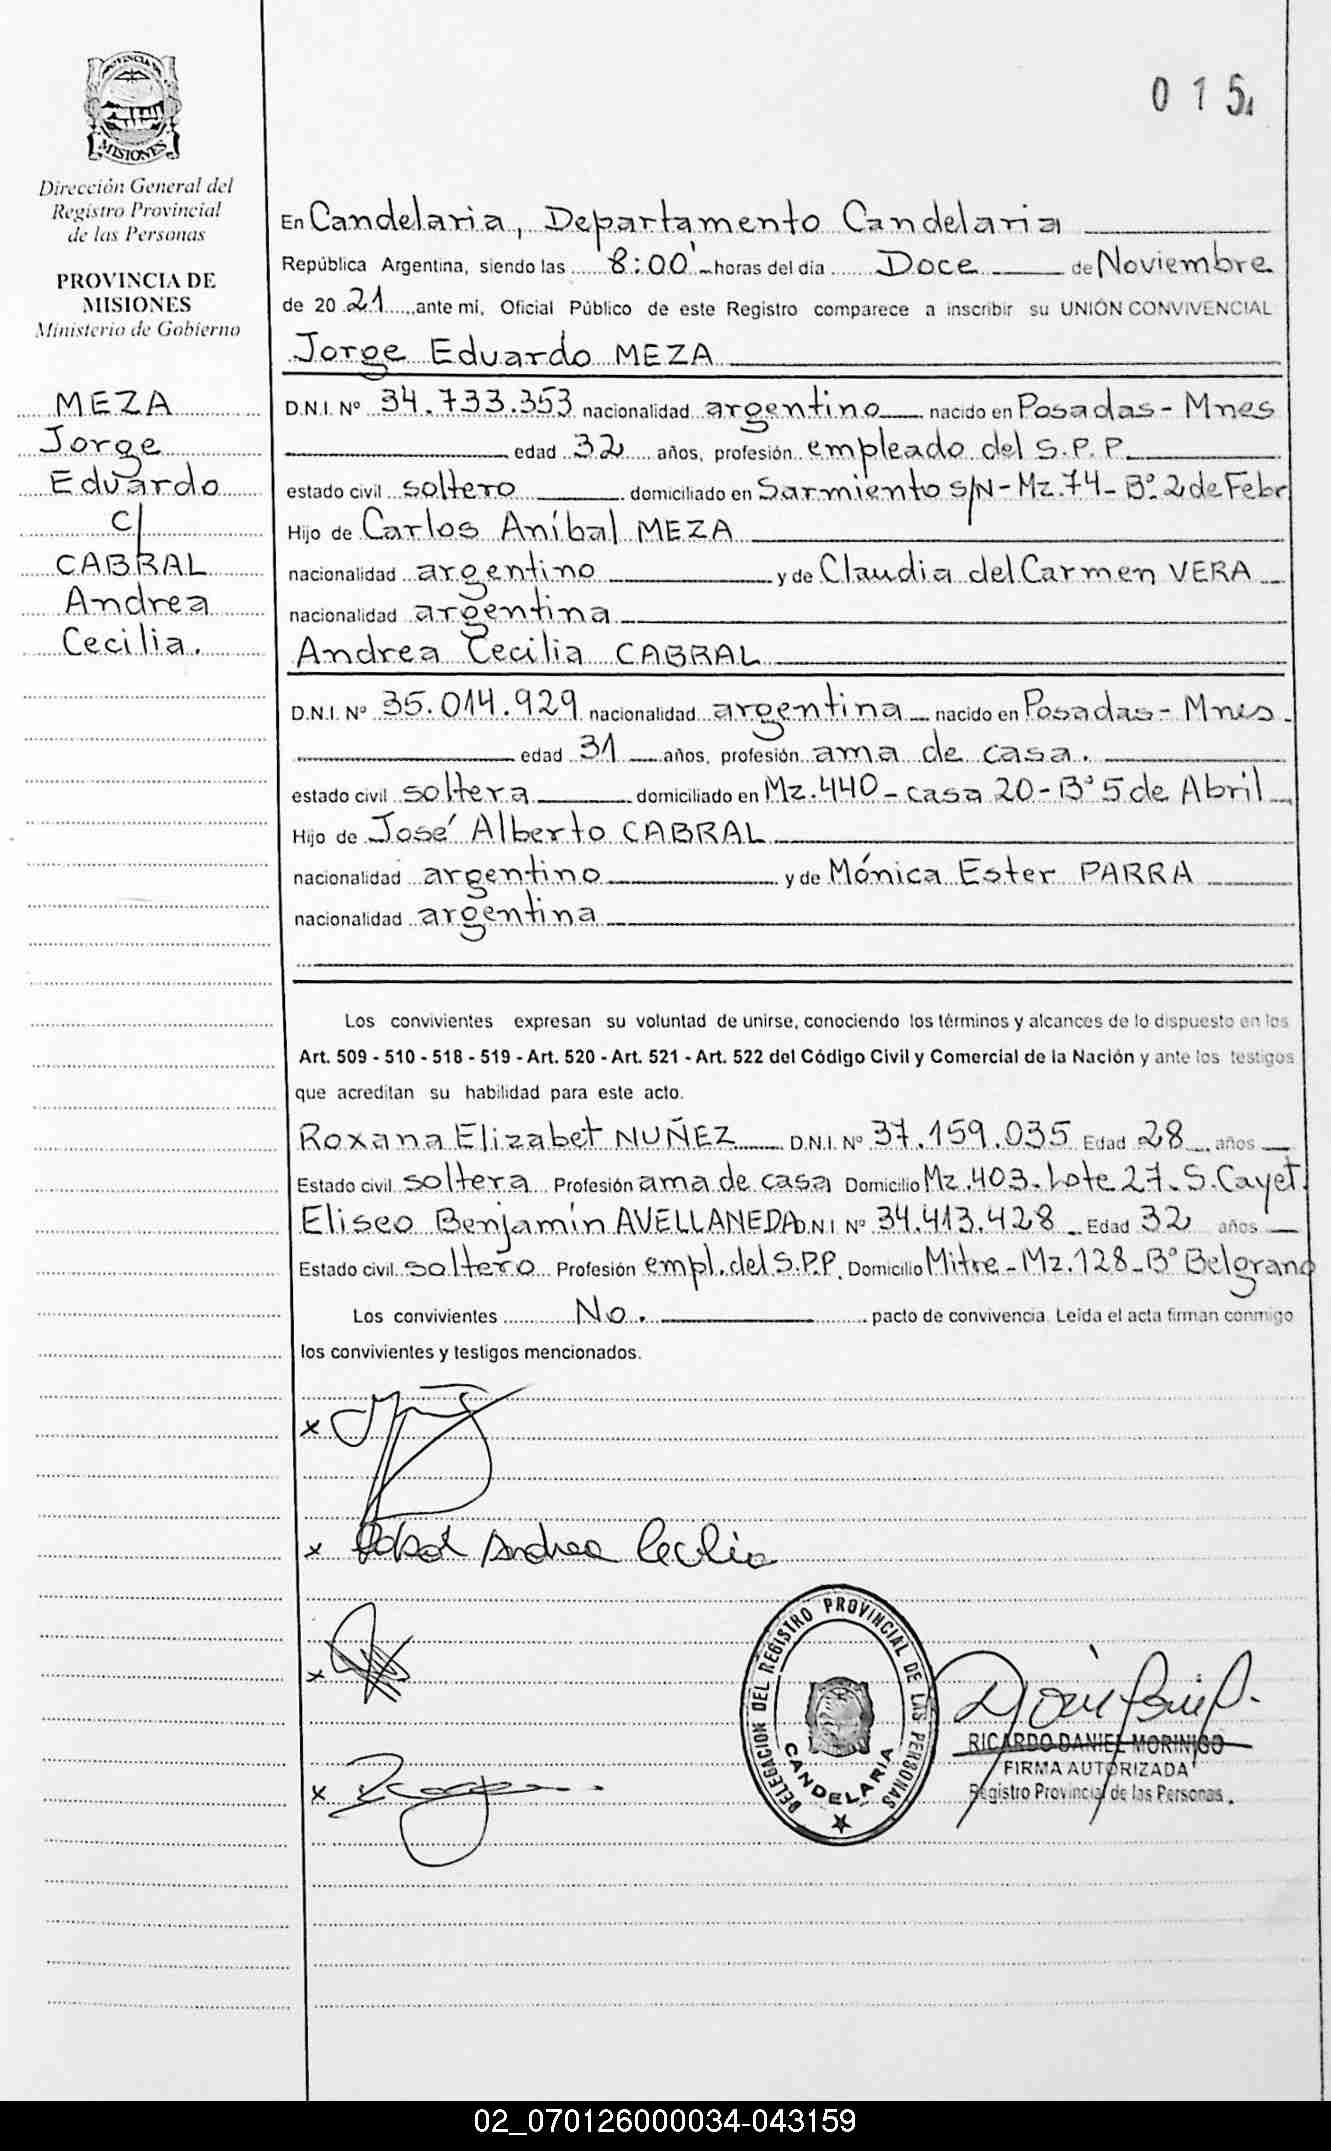 PROVINCIA DE
MISIONES
Dirección General del
Registro Provincial
de las Personas
PROVINCIA DE
MISIONES
Ministerio de Gobierno
MEZA
Jorge
Eduardo
c/
CABRAL
Andrea
Cecilia.
015
En Candelaria, Departamento Candelaria
República Argentina, siendo las 8:00 horas del día Doce de Noviembre
de 2021 ante mi, Oficial Público de este Registro comparece a inscribir su UNIÓN CONVIVENCIAL
Jorge Eduardo MEZA
D.N.I. Nº 34.733.353 nacionalidad argentino nacido en Posadas - Mnes
edad 32 años, profesión empleado del S.P.P.
estado civil soltero domiciliado en Sarmiento s/N - Mz.74 - Bº.2 de Febr
Hijo de Carlos Aníbal MEZA
nacionalidad argentino y de Claudia del Carmen VERA
nacionalidad argentina
Andrea Cecilia CABRAL
D.N.I. Nº 35.014.929 nacionalidad argentina nacido en Posadas - Mnes.
edad 31 años, profesión ama de casa.
estado civil soltera domiciliado en Mz.440 - casa 20 - Bº 5 de Abril
Hijo de José Alberto CABRAL
nacionalidad argentino y de Mónica Ester PARRA
nacionalidad argentina
Los convivientes expresan su voluntad de unirse, conociendo los términos y alcances de lo dispuesto en los
Art. 509 - 510 - 518 - 519 - Art. 520 - Art. 521 - Art. 522 del Código Civil y Comercial de la Nación y ante los testigos
que acreditan su habilidad para este acto.
Roxana Elizabet NUÑEZ D.N.I. Nº 37.159.035 Edad 28 años
Estado civil soltera Profesión ama de casa Domicilio Mz.403 - Lote 27 - S.Cayet.
Eliseo Benjamín AVELLANEDA D.N.I Nº 34.413.428 Edad 32 años
Estado civil soltero Profesión empl.del S.P.P. Domicilio Mitre - Mz.128 - Bº Belgrano
Los convivientes No. pacto de convivencia. Leída el acta firman conmigo
los convivientes y testigos mencionados.
x
x Cabral Andrea Cecilia
x
x
DELEGACION DEL REGISTRO PROVINCIAL DE LAS PERSONAS
CANDELARIA
RICARDO DANIEL MORINIGO
FIRMA AUTORIZADA
Registro Provincial de las Personas.
02_070126000034-043159